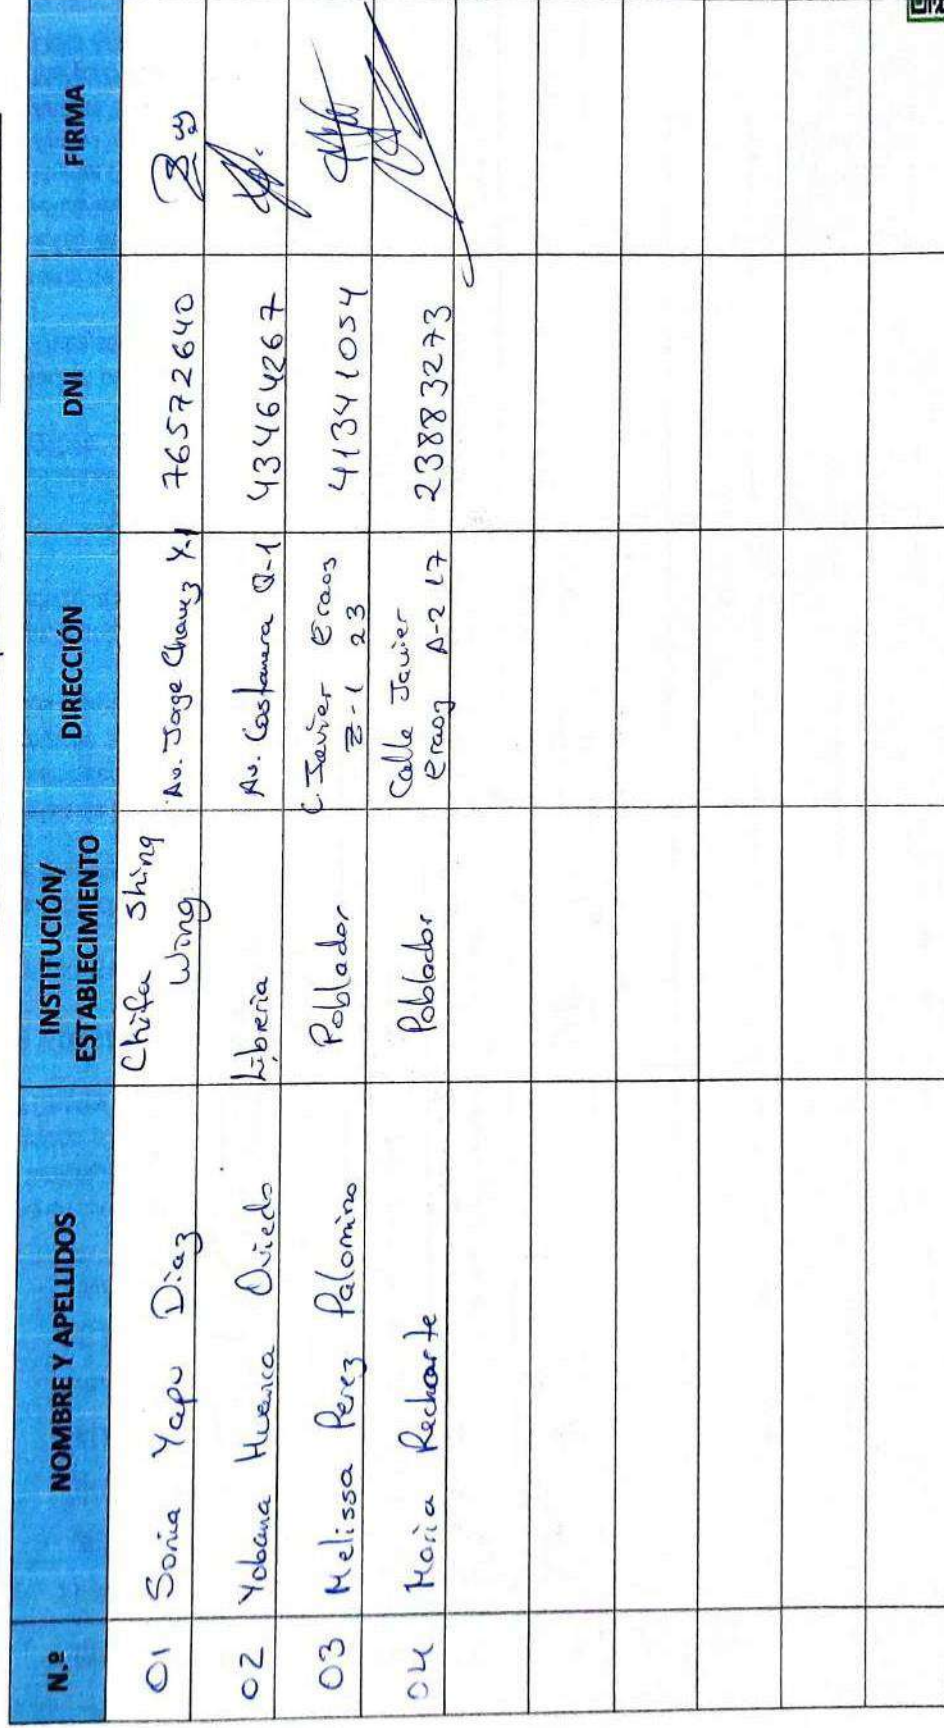 N.º NOMBRE Y APELLIDOS INSTITUCIÓN/ ESTABLECIMIENTO DIRECCIÓN DNI FIRMA
01 Sonia Yapu Diaz Chifa Shing Wing Av. Jorge Chavez Y-1 76572640
02 Yobana Huanca Oviedo Libreria Av. Costanera Q-1 43464267
03 Melissa Perez Palomino Poblador C. Javier Eraos Z-1 23 41341054
04 Maria Recharte Poblador Calle Javier Eraoz A-2 L7 23883273